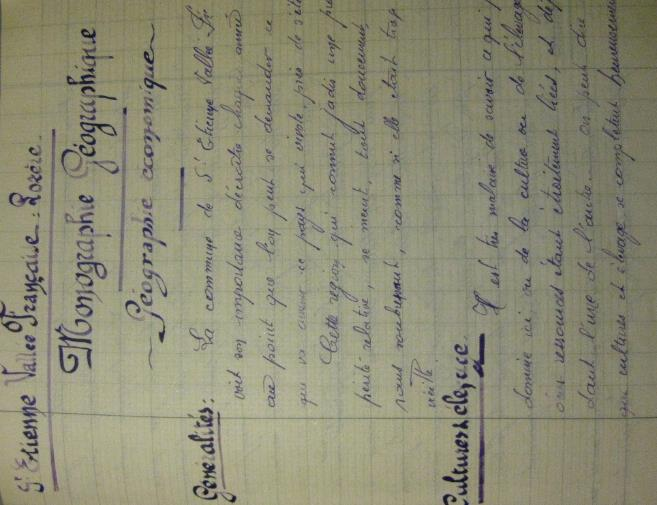 St Etienne Vallée Française : Lozère.
Monographie Géographique
~ Géographie économique ~
Généralités :
La commune de St Etienne Vallée Fr
voit son importance décroître chaque année
au point que l'on peut se demander ce
que va devenir ce pays qui existe, près de s'éte
Cette région qui connut jadis une pros
périté relative, se meurt, tout doucement,
sans soubresaut, comme si elle était trop
vieille.
Cultures & élevage.
Il est très malaisé de savoir ce qui p
domine ici ou de la culture ou de l'élevage
ces ressources étant étroitement liées, et dép
dant l'une de l'autre. On peut dire
que cultures et élevage se complètent heureusement